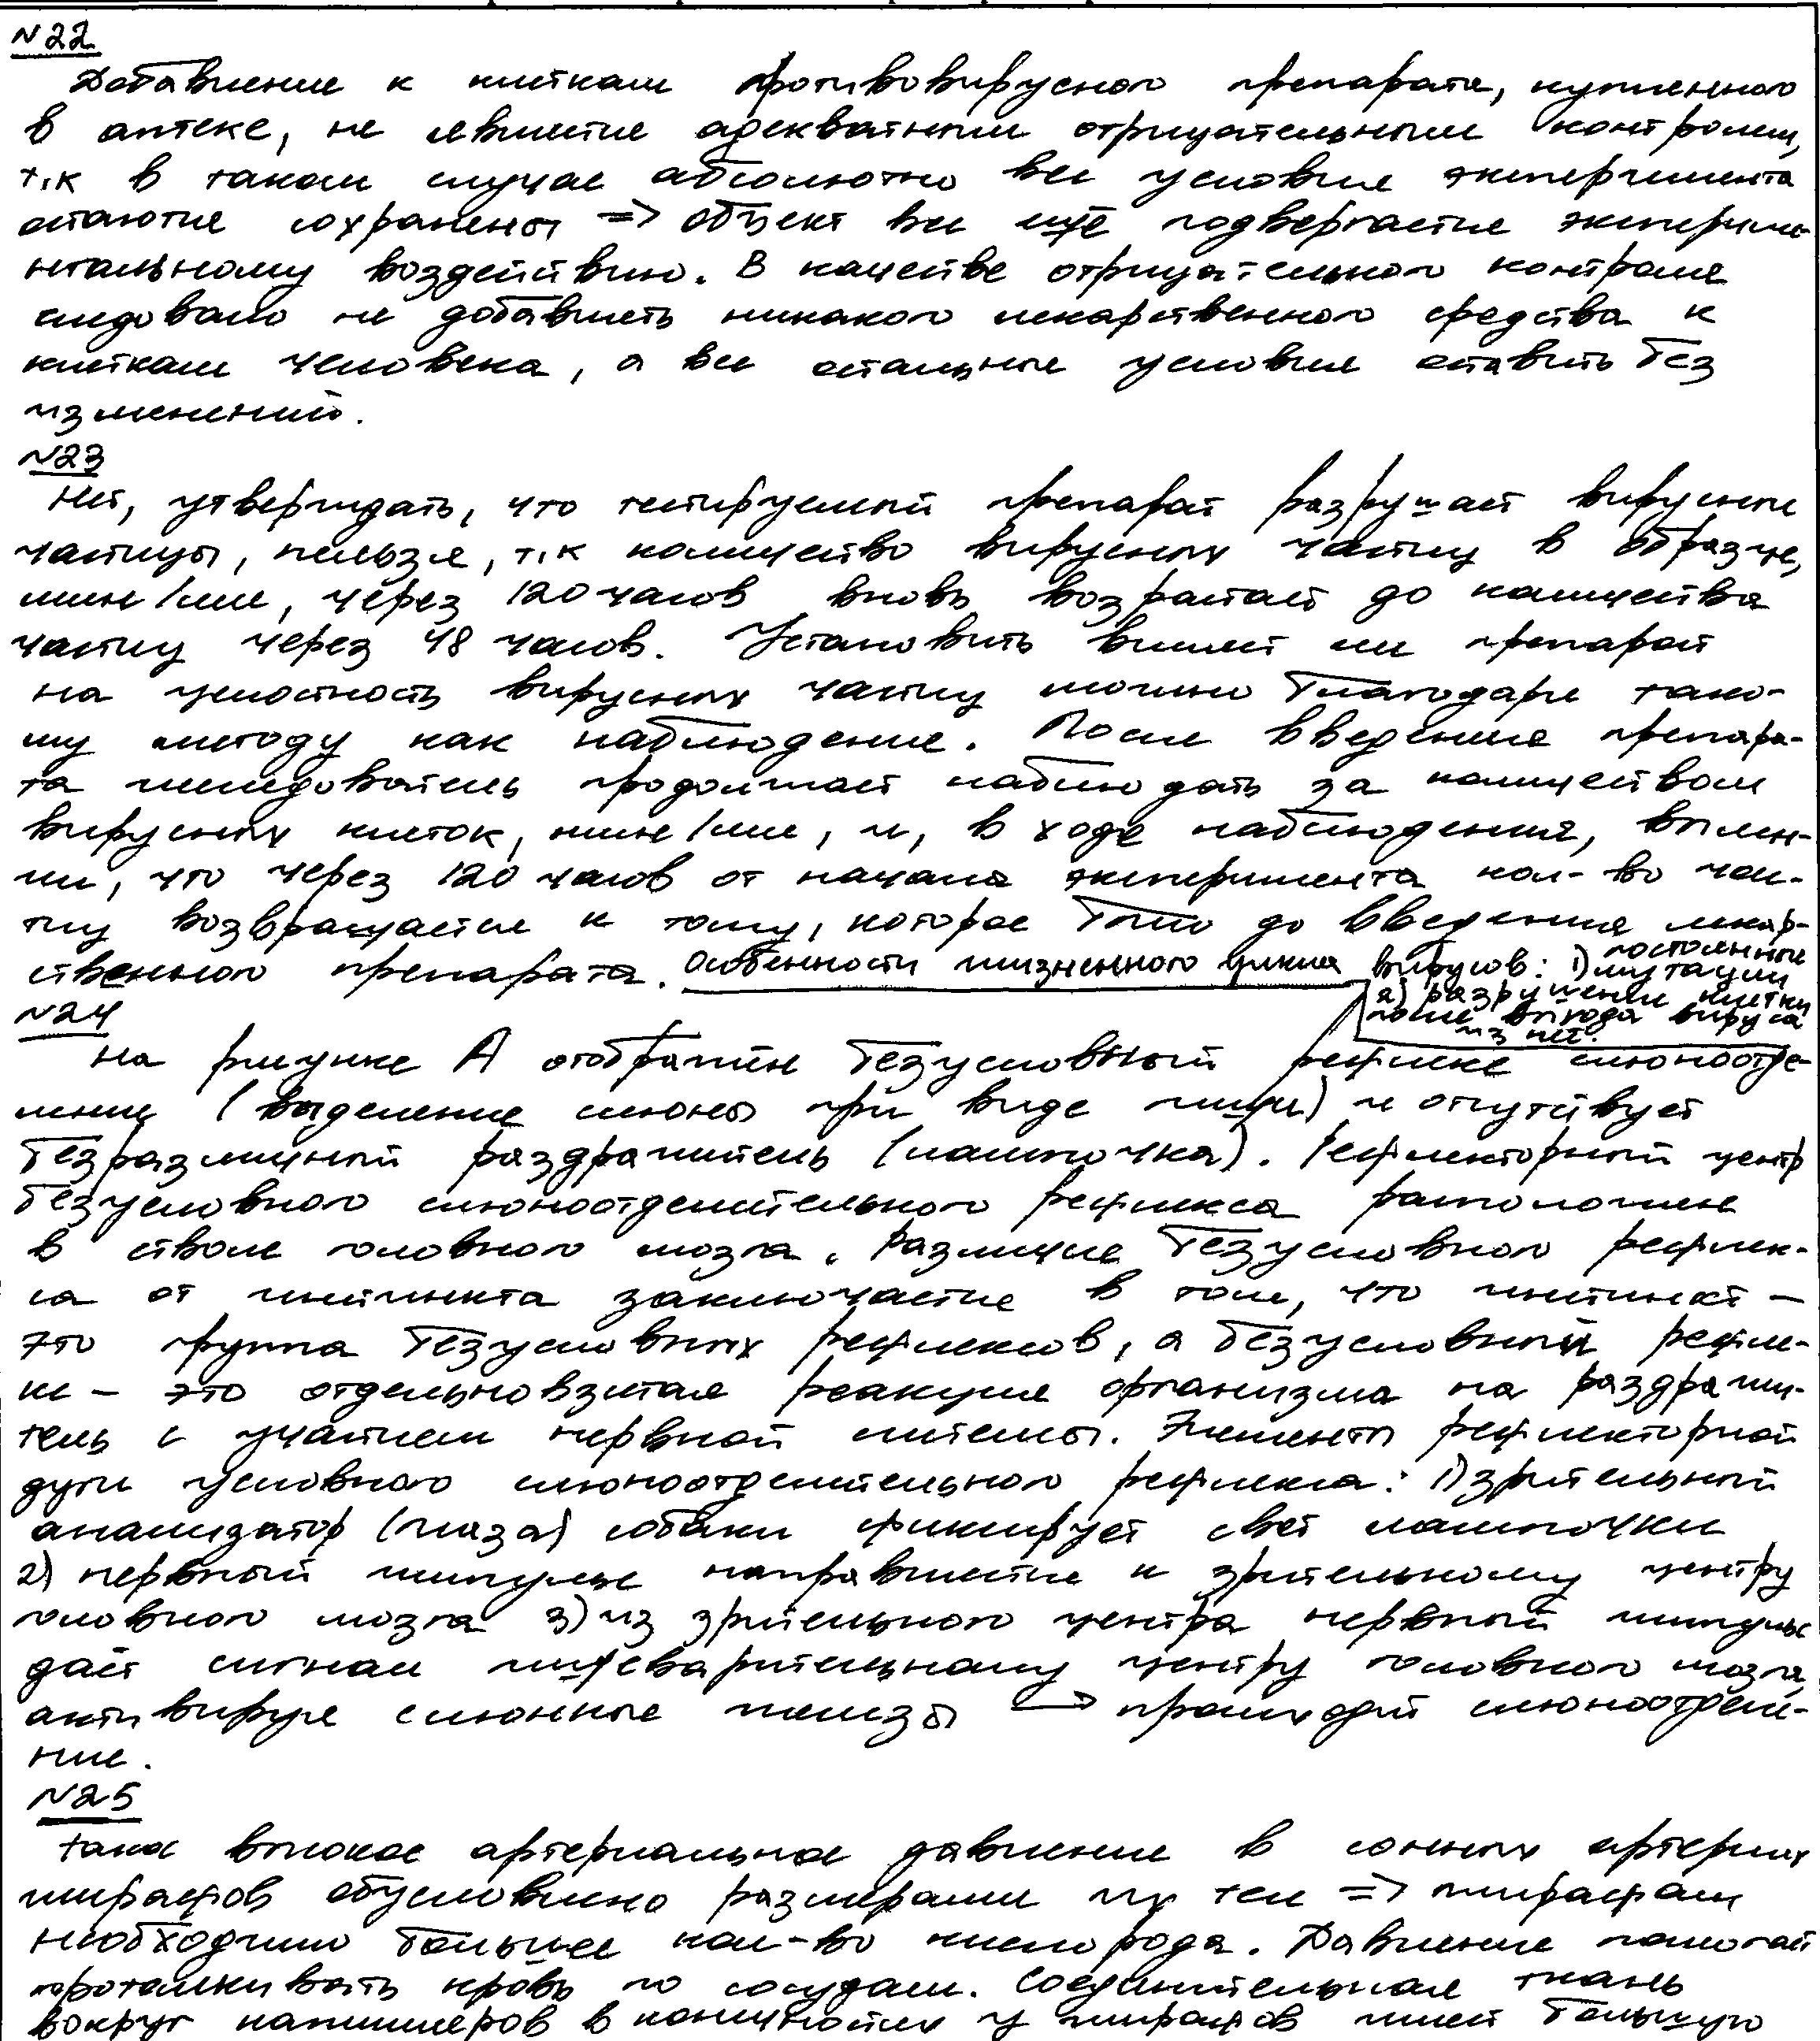 №22
Добавление к клеткам противовирусного препарата, купленного
в аптеке, не является адекватным отрицательным контролем,
т.к в таком случае абсолютно все условия эксперимента
остаются сохранены => объект все ещё подвергается эксперим-
нтальному воздействию. В качестве отрицательного контроля
следовало не добавлять никакого лекарственного средства к
клеткам человека, а все остальные условия ставить без
изменений.
№23
Нет, утверждать, что тестируемый препарат разрушает вирусные
частицы, нельзя, т.к количество вирусных частиц в образце,
млн/мл, через 120 часов вновь возрастает до количества
частиц через 48 часов. Установить влияет ли препарат
на целостность вирусных частиц можно благодаря тако-
му методу как наблюдение. После введения препара-
та исследователь продолжает наблюдать за количеством
вирусных клеток, млн/мл, и, в ходе наблюдения, выясн-
ил, что через 120 часов от начала эксперимента кол-во час-
тиц возвращается к тому, которое было до введения лекар-
ственного препарата. Особенности жизненного цикла вирусов: 1) постоянные
мутации
2) разрушение клетки
после выхода вируса
из неё.
№24
На рисунке А отображён безусловный рефлекс слюноотде-
ления (выделение слюны при виде пищи) и отсутствует
безразличный раздражитель (лампочка). Рефлекторный центр
безусловного слюноотделительного рефлекса расположен
в стволе головного мозга. Различие безусловного рефлек-
са от инстинкта заключается в том, что инстинкт -
это группа безусловных рефлексов, а безусловный рефле-
кс - это отдельновзятая реакция организма на раздражи-
тель с участием нервной системы. Элементы рефлекторной
дуги условного слюноотделительного рефлекса: 1) зрительный
анализатор (глаза) собаки фиксирует свет лампочки
2) нервный импульс направляется к зрительному центру
головного мозга 3) из зрительного центра нервный импульс
даёт сигнал пищеварительному центру головного мозга,
активируя слюнные железы → происходит слюноотделе-
ние.
№25
Такое высокое артериальное давление в сонных артериях
жирафов обусловлено размерами их тел => жирафам
необходимо большее кол-во кислорода. Давление помогает
проталкивать кровь по сосудам. Соединительная ткань
вокруг капилляров в конечностях у жирафов имеет большую